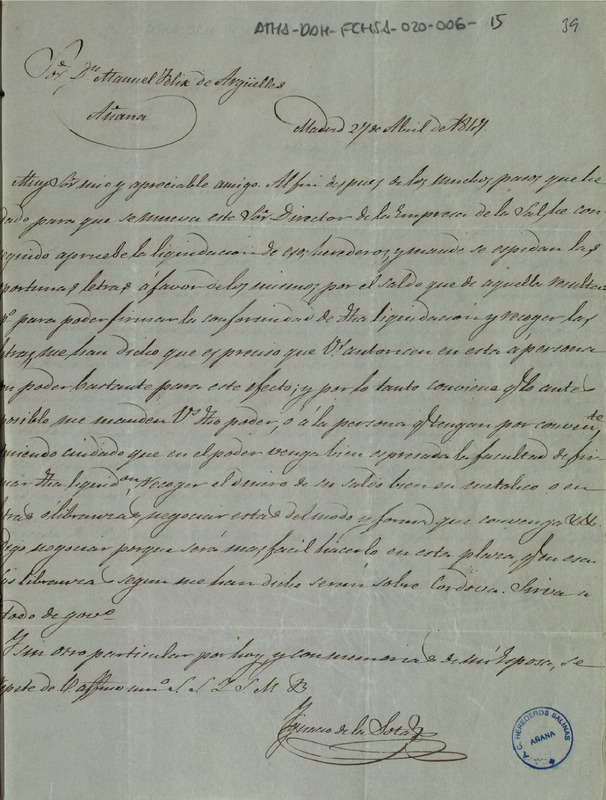 ATHA-DAH-FCHSA-020-006-15
39
Sor Dn Manuel Felix de Argüelles
Añana
Madrid 27 de Abril de 1847
Muy Sor mio y apreciable amigo. Al fin despues de los muchos pasos que he
dado para que se mueva este Sor Director de la Empresa de la Sal, he con
seguido apruebe la liquidacion de esos herederos, y mande se espidan las
oportunas letras á favor de los mismos por el saldo que de aquella resulta
pa para poder firmar la conformidad de dha liquidacion y recoger las
letras, me han dicho que es preciso que Vs autoricen en esta á persona
con poder bastante para este efecto; y por lo tanto conviene q lo antes
posible me manden Vs dho poder, ó á la persona q tengan por convente
teniendo cuidado que en el poder venga bien espresada la facultad de fir
mar dha liquidon, recoger el dinero de su saldo bien en metalico o en
letras ó libranzas, negociar estas del modo y forma que convenga &&
Digo negociar porque será mas facil hacerlo en esta plaza, q en esa
las libranzas segun me han dicho serán sobre Cordova. Sirva a
todo de govo
Y sin otro particular por hoy, y con memorias de mi Esposa, se
repite de V affmo amo S S Q S M B
Ignacio de la Sota
A. C. HEREDEROS SALINAS
AÑANA